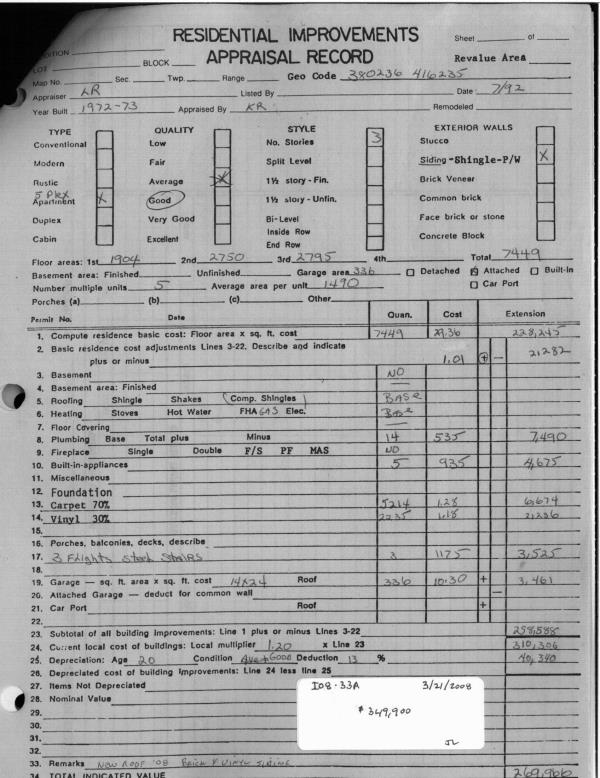 RESIDENTIAL IMPROVEMENTS
APPRAISAL RECORD
Sheet of
LOT BLOCK Revalue Area
Map No. Sec. Twp. Range Geo Code 380236 416235
Appraiser KR Listed By Date 7/92
Year Built 1972-73 Appraised By KR Remodeled
TYPE QUALITY STYLE EXTERIOR WALLS
Conventional Low No. Stories 3 Stucco
Modern Fair Split Level Siding-Shingle-P/W X
Rustic Average X 1½ story - Fin. Brick Veneer
5 Plex
Apartment X Good 1½ story - Unfin. Common brick
Duplex Very Good Bi-Level Face brick or stone
Inside Row
Cabin Excellent End Row Concrete Block
Floor areas: 1st 1904 2nd 2750 3rd 2795 4th Total 7449
Basement area: Finished Unfinished Garage area 336 Detached Attached Built-In
Number multiple units 5 Average area per unit 1490 Car Port
Porches (a) (b) (c) Other
Permit No. Date Quan. Cost Extension
1. Compute residence basic cost: Floor area x sq. ft. cost 7449 29.36 228,245
2. Basic residence cost adjustments Lines 3-22. Describe and indicate
plus or minus 1.01 + - 2,282
3. Basement NO
4. Basement area: Finished
5. Roofing Shingle Shakes Comp. Shingles BASE
6. Heating Stoves Hot Water FHA GAS Elec. BASE
7. Floor Covering
8. Plumbing Base Total plus Minus 14 535 7,490
9. Fireplace Single Double F/S PF MAS NO
10. Built-in-appliances 5 935 4,675
11. Miscellaneous
12. Foundation
13. Carpet 70% 5214 1.28 6,674
14. Vinyl 30% 2235 1.18
15.
16. Porches, balconies, decks, describe
17. 3 Flights Steel Stairs 3 1175 3,525
18.
19. Garage — sq. ft. area x sq. ft. cost 14x24 Roof 336 10.30 + 3,461
20. Attached Garage — deduct for common wall −
21. Car Port Roof +
22.
23. Subtotal of all building improvements: Line 1 plus or minus Lines 3-22 258,588
24. Current local cost of buildings: Local multiplier 1.20 x Line 23 310,306
25. Depreciation: Age 20 Condition Ave + Good Deduction 13 % 40,340
26. Depreciated cost of building improvements: Line 24 less line 25
27. Items Not Depreciated
28. Nominal Value
29.
30.
31.
32.
I08-33A 3/21/2008
$349,900
JL
33. Remarks New Roof '08 Brick & Vinyl Siding
34 TOTAL INDICATED VALUE 269,966